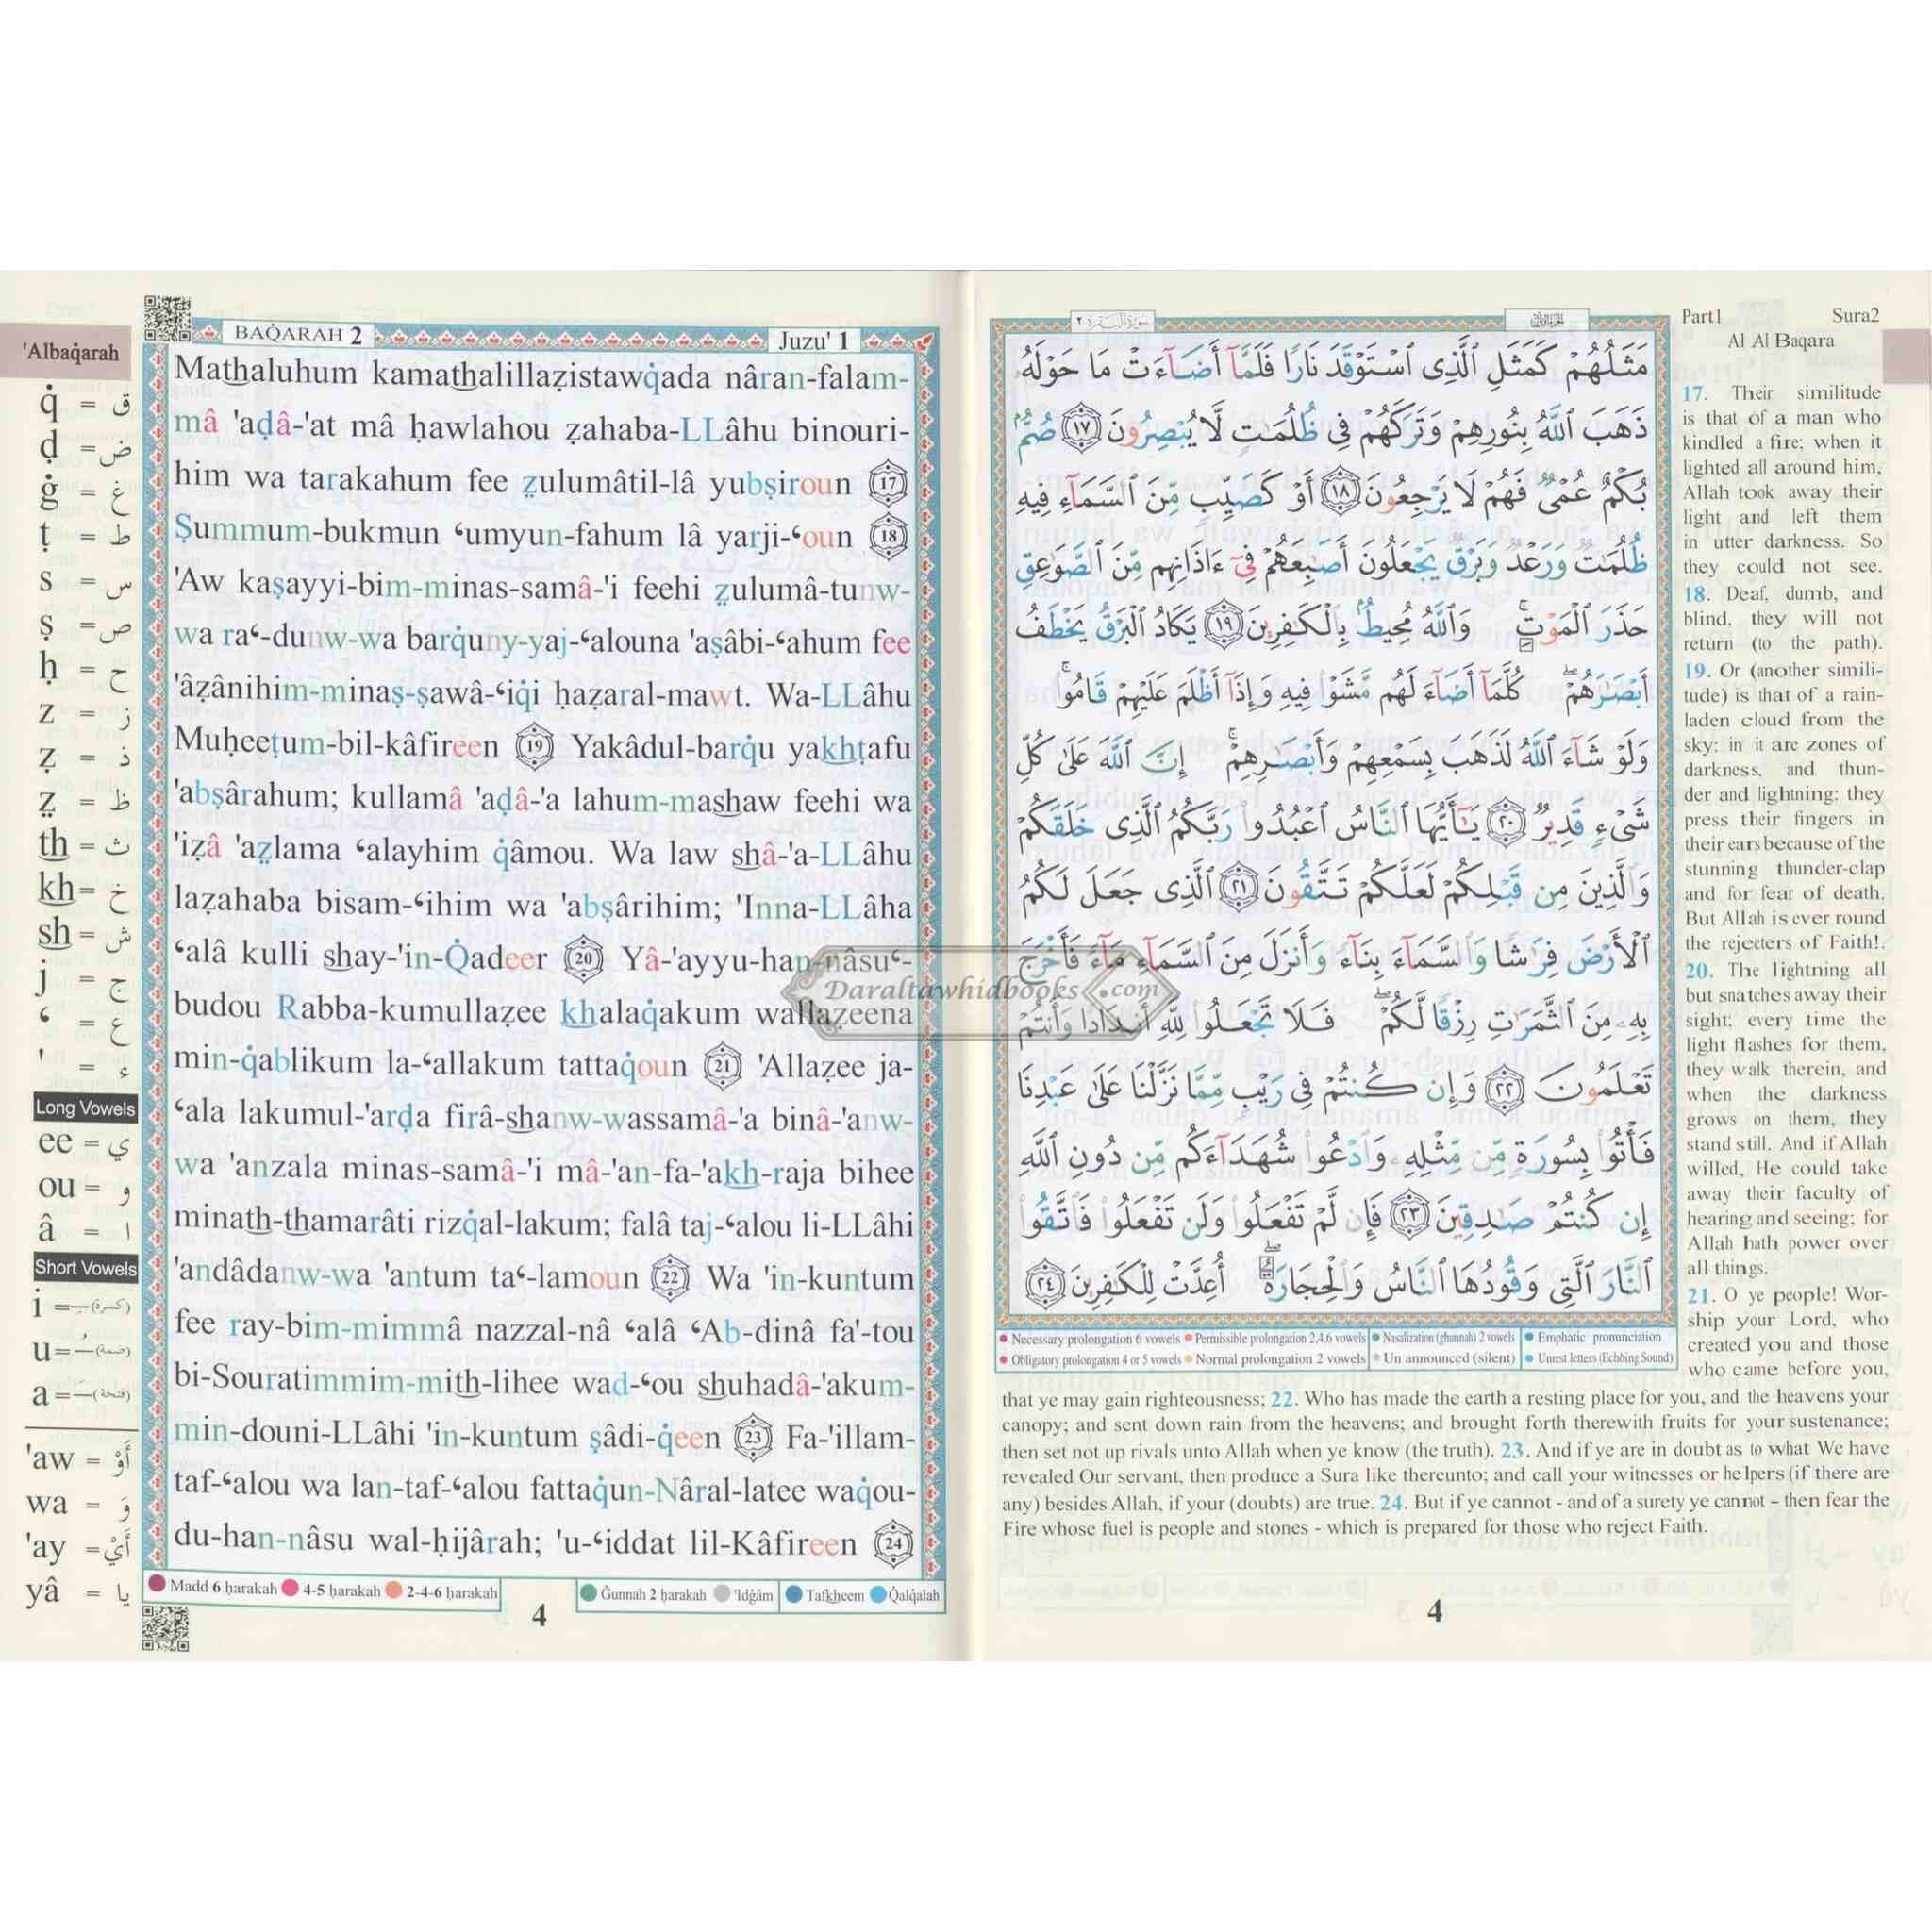 'Albaq̇arah
q̇ = ق
ḍ = ض
ġ = غ
ṭ = ط
s = س
ṣ = ص
ḥ = ح
z = ز
ẓ = ذ
ẓ̱ = ظ
t͟h = ث
k͟h = خ
s͟h = ش
j = ج
ʻ = ع
' = ء
Long Vowels
ee = ي
ou = و
â = ا
Short Vowels
i = (كسرة)
u = (ضمة)
a = (فتحة)
'aw = أَوْ
wa = وَ
'ay = أَيْ
yâ = يا
BAQ̇ARAH 2
Juzu' 1
Mat͟haluhum kamat͟halillaẓistawq̇ada nâran-falam-
mâ 'aḍâ-'at mâ ḥawlahou ẓahaba-LLâhu binouri-
him wa tarakahum fee ẓ̱ulumâtil-lâ yubṣiroun 17
Ṣummum-bukmun ʻumyun-fahum lâ yarji-ʻoun 18
'Aw kaṣayyi-bim-minas-samâ-'i feehi ẓ̱ulumâ-tunw-
wa raʻ-dunw-wa barq̇uny-yaj-ʻalouna 'aṣâbi-ʻahum fee
'âẓânihim-minaṣ-ṣawâ-ʻiq̇i ḥaẓaral-mawt. Wa-LLâhu
Muḥeeṭum-bil-kâfireen 19 Yakâdul-barq̇u yak͟hṭafu
'abṣârahum; kullamâ 'aḍâ-'a lahum-mas͟haw feehi wa
'iẓâ 'aẓ̱lama ʻalayhim q̇âmou. Wa law s͟hâ-'a-LLâhu
laẓahaba bisam-ʻihim wa 'abṣârihim; 'Inna-LLâha
ʻalâ kulli s͟hay-'in-Q̇adeer 20 Yâ-'ayyu-han-nâsuʻ-
budou Rabba-kumullaẓee k͟halaq̇akum wallaẓeena
min-q̇ablikum la-ʻallakum tattaq̇oun 21 'Allaẓee ja-
ʻala lakumul-'arḍa firâ-s͟hanw-wassamâ-'a binâ-'anw-
wa 'anzala minas-samâ-'i mâ-'an-fa-'ak͟h-raja bihee
minat͟h-t͟hamarâti rizq̇al-lakum; falâ taj-ʻalou li-LLâhi
'andâdanw-wa 'antum taʻ-lamoun 22 Wa 'in-kuntum
fee ray-bim-mimmâ nazzal-nâ ʻalâ ʻAb-dinâ fa'-tou
bi-Souratimmim-mit͟h-lihee wad-ʻou s͟huhadâ-'akum-
min-douni-LLâhi 'in-kuntum ṣâdi-q̇een 23 Fa-'illam-
taf-ʻalou wa lan-taf-ʻalou fattaq̇un-Nâral-latee waq̇ou-
du-han-nâsu wal-ḥijârah; 'u-ʻiddat lil-Kâfireen 24
Madd 6 ḥarakah 4-5 ḥarakah 2-4-6 ḥarakah
Ġunnah 2 ḥarakah 'Idġâm Tafk͟heem Q̇alq̇alah
4
سورة البقرة ٢
الجزء الأول
مَثَلُهُمْ كَمَثَلِ ٱلَّذِى ٱسْتَوْقَدَ نَارًا فَلَمَّآ أَضَآءَتْ مَا حَوْلَهُۥ
ذَهَبَ ٱللَّهُ بِنُورِهِمْ وَتَرَكَهُمْ فِى ظُلُمَٰتٍ لَّا يُبْصِرُونَ ١٧ صُمٌّۢ
بُكْمٌ عُمْىٌ فَهُمْ لَا يَرْجِعُونَ ١٨ أَوْ كَصَيِّبٍ مِّنَ ٱلسَّمَآءِ فِيهِ
ظُلُمَٰتٌ وَرَعْدٌ وَبَرْقٌ يَجْعَلُونَ أَصَٰبِعَهُمْ فِىٓ ءَاذَانِهِم مِّنَ ٱلصَّوَٰعِقِ
حَذَرَ ٱلْمَوْتِ ۚ وَٱللَّهُ مُحِيطٌۢ بِٱلْكَٰفِرِينَ ١٩ يَكَادُ ٱلْبَرْقُ يَخْطَفُ
أَبْصَٰرَهُمْ ۖ كُلَّمَآ أَضَآءَ لَهُم مَّشَوْا۟ فِيهِ وَإِذَآ أَظْلَمَ عَلَيْهِمْ قَامُوا۟ ۚ
وَلَوْ شَآءَ ٱللَّهُ لَذَهَبَ بِسَمْعِهِمْ وَأَبْصَٰرِهِمْ ۚ إِنَّ ٱللَّهَ عَلَىٰ كُلِّ
شَىْءٍ قَدِيرٌ ٢٠ يَٰٓأَيُّهَا ٱلنَّاسُ ٱعْبُدُوا۟ رَبَّكُمُ ٱلَّذِى خَلَقَكُمْ
وَٱلَّذِينَ مِن قَبْلِكُمْ لَعَلَّكُمْ تَتَّقُونَ ٢١ ٱلَّذِى جَعَلَ لَكُمُ
ٱلْأَرْضَ فِرَٰشًا وَٱلسَّمَآءَ بِنَآءً وَأَنزَلَ مِنَ ٱلسَّمَآءِ مَآءً فَأَخْرَجَ
بِهِۦ مِنَ ٱلثَّمَرَٰتِ رِزْقًا لَّكُمْ ۖ فَلَا تَجْعَلُوا۟ لِلَّهِ أَندَادًا وَأَنتُمْ
تَعْلَمُونَ ٢٢ وَإِن كُنتُمْ فِى رَيْبٍ مِّمَّا نَزَّلْنَا عَلَىٰ عَبْدِنَا
فَأْتُوا۟ بِسُورَةٍ مِّن مِّثْلِهِۦ وَٱدْعُوا۟ شُهَدَآءَكُم مِّن دُونِ ٱللَّهِ
إِن كُنتُمْ صَٰدِقِينَ ٢٣ فَإِن لَّمْ تَفْعَلُوا۟ وَلَن تَفْعَلُوا۟ فَٱتَّقُوا۟
ٱلنَّارَ ٱلَّتِى وَقُودُهَا ٱلنَّاسُ وَٱلْحِجَارَةُ ۖ أُعِدَّتْ لِلْكَٰفِرِينَ ٢٤
Necessary prolongation 6 vowels Permissible prolongation 2,4,6 vowels Nasalization (ghunnah) 2 vowels Emphatic pronunciation
Obligatory prolongation 4 or 5 vowels Normal prolongation 2 vowels Un announced (silent) Unrest letters (Echoing Sound)
Part1 Sura2
Al Al Baqara
17. Their similitude
is that of a man who
kindled a fire; when it
lighted all around him,
Allah took away their
light and left them
in utter darkness. So
they could not see.
18. Deaf, dumb, and
blind, they will not
return (to the path).
19. Or (another simili-
tude) is that of a rain-
laden cloud from the
sky: in it are zones of
darkness, and thun-
der and lightning: they
press their fingers in
their ears because of the
stunning thunder-clap
and for fear of death.
But Allah is ever round
the rejecters of Faith!.
20. The lightning all
but snatches away their
sight; every time the
light flashes for them,
they walk therein, and
when the darkness
grows on them, they
stand still. And if Allah
willed, He could take
away their faculty of
hearing and seeing; for
Allah hath power over
all things.
21. O ye people! Wor-
ship your Lord, who
created you and those
who came before you,
that ye may gain righteousness; 22. Who has made the earth a resting place for you, and the heavens your
canopy; and sent down rain from the heavens; and brought forth therewith fruits for your sustenance;
then set not up rivals unto Allah when ye know (the truth). 23. And if ye are in doubt as to what We have
revealed Our servant, then produce a Sura like thereunto; and call your witnesses or helpers (if there are
any) besides Allah, if your (doubts) are true. 24. But if ye cannot - and of a surety ye cannot – then fear the
Fire whose fuel is people and stones - which is prepared for those who reject Faith.
4
Daraltawhidbooks .com